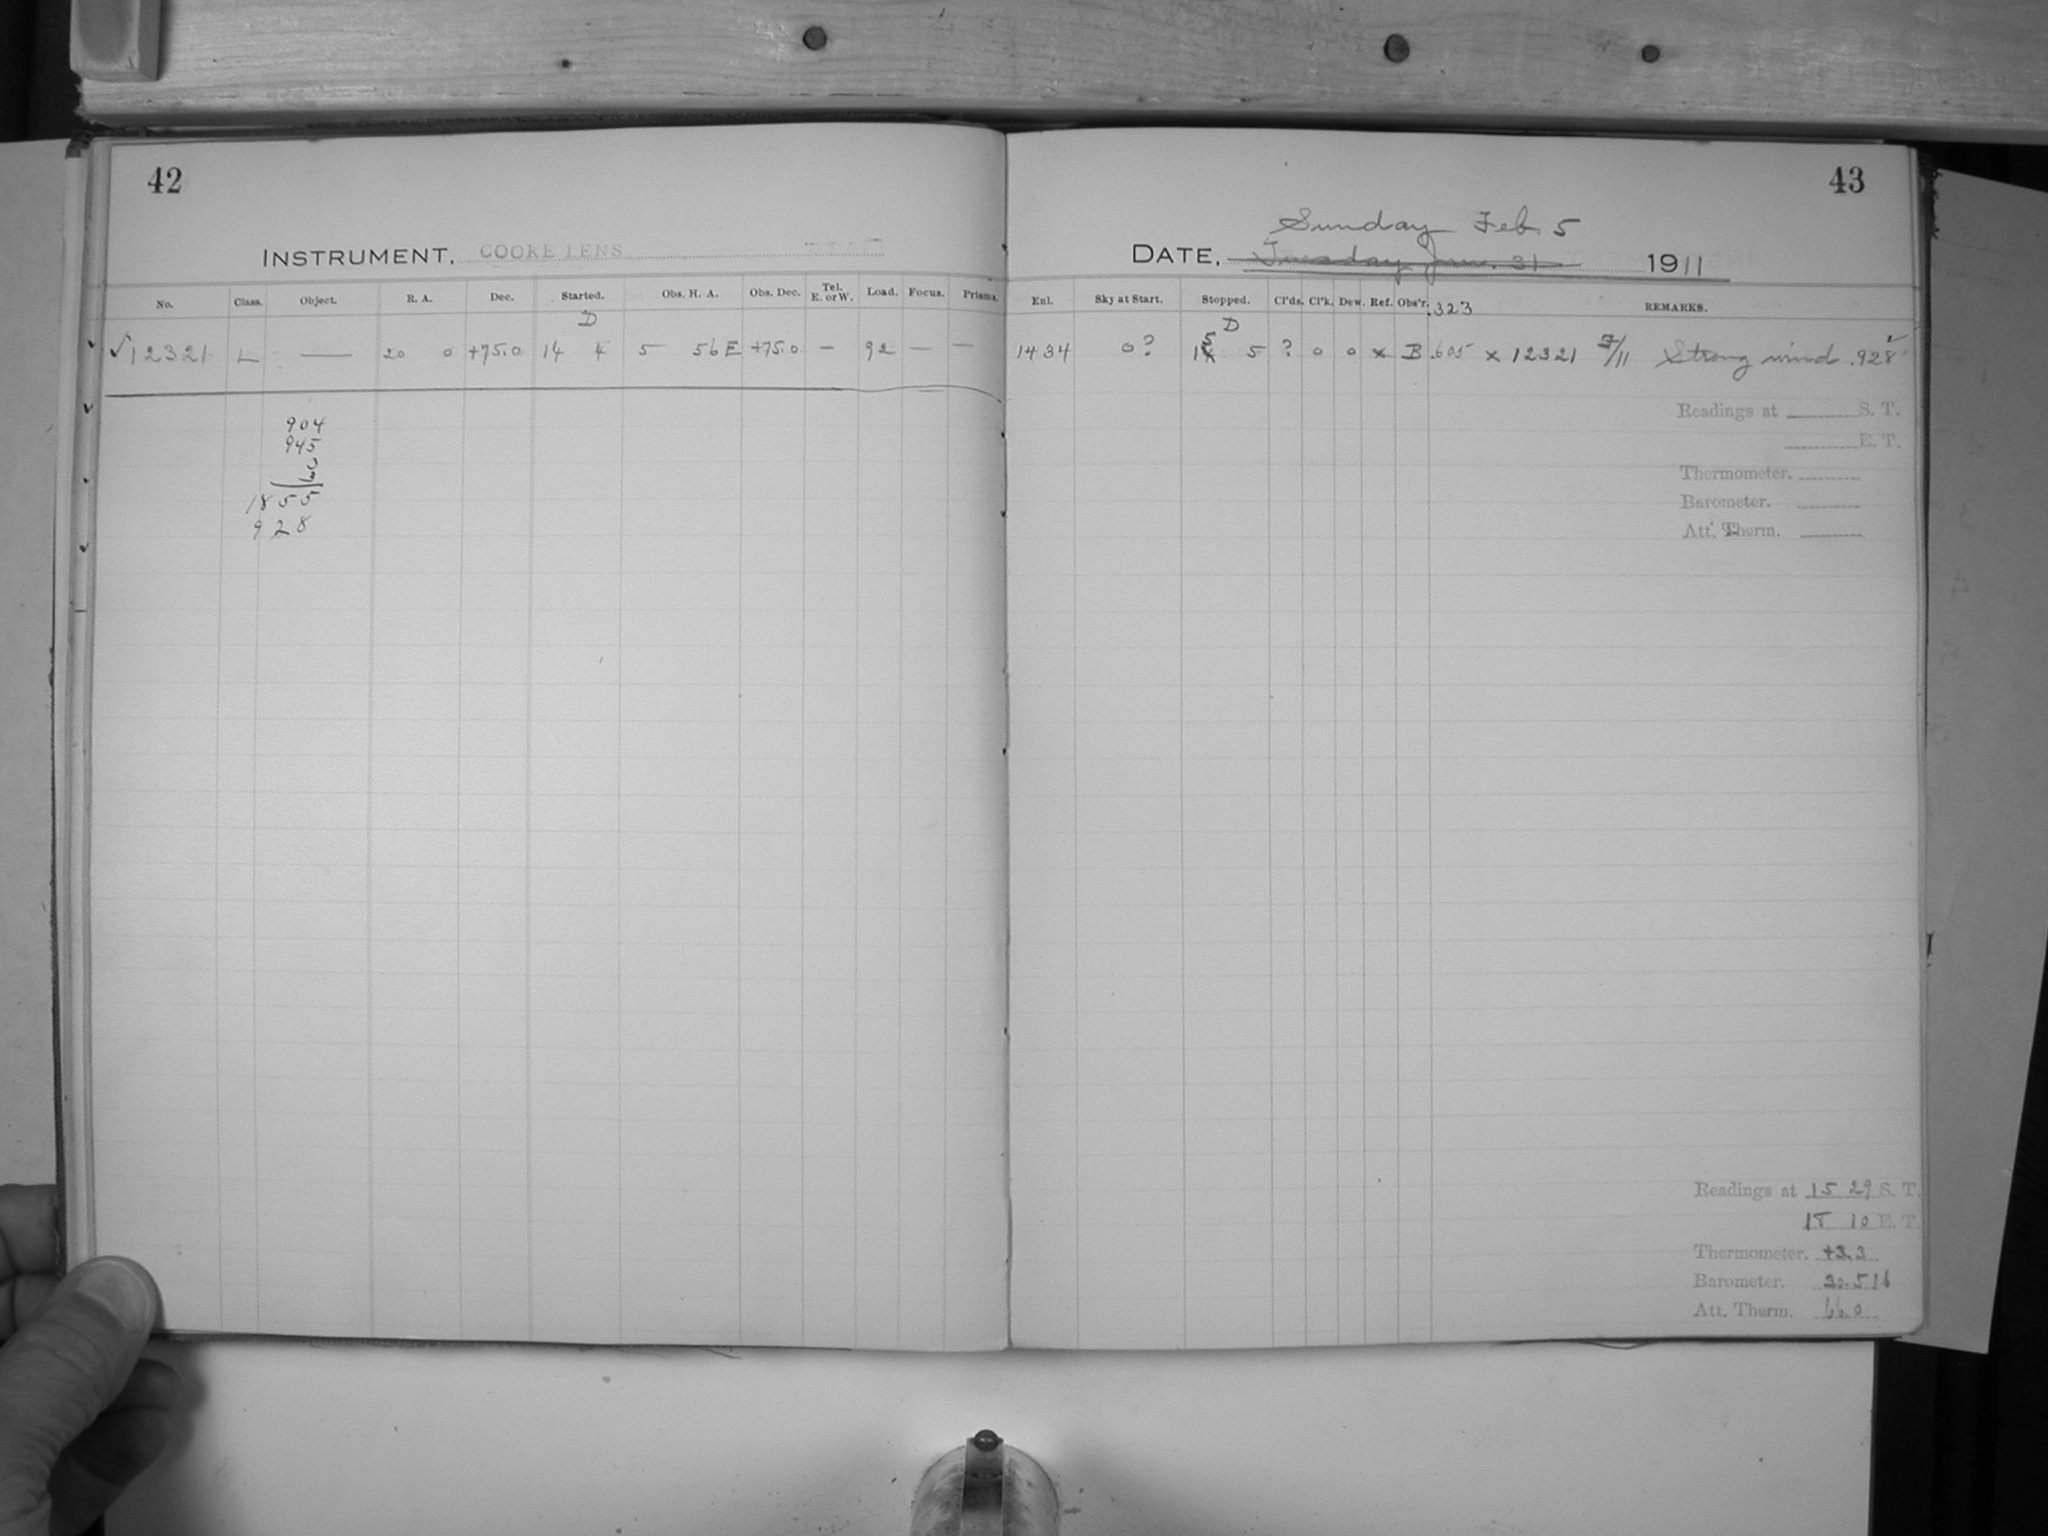 42
INSTRUMENT, COOKE LENS
No. Class. Object. R. A. Dec. Started. Obs. H. A. Obs. Dec. Tel. E. or W. Load. Focus. Prisms.
D
✓12321 L — 20 0 +75.0 14 4 5 56E +75.0 — 92 — —
904
945
1855
928
43
Sunday Feb. 5
DATE, Tuesday Jan. 31 1911
Enl. Sky at Start. Stopped. Cl'ds. Cl'k. Dew. Ref. Obs'r. .323 REMARKS.
D
1434 0? 15 5 ? 0 0 x B .605 x 12321 7/11 Strong wind .928
Readings at S. T.
E. T.
Thermometer.
Barometer.
Att. Therm.
Readings at 15 29 S. T.
18 10 E. T.
Thermometer. +33
Barometer. 30.516
Att. Therm. 66.0